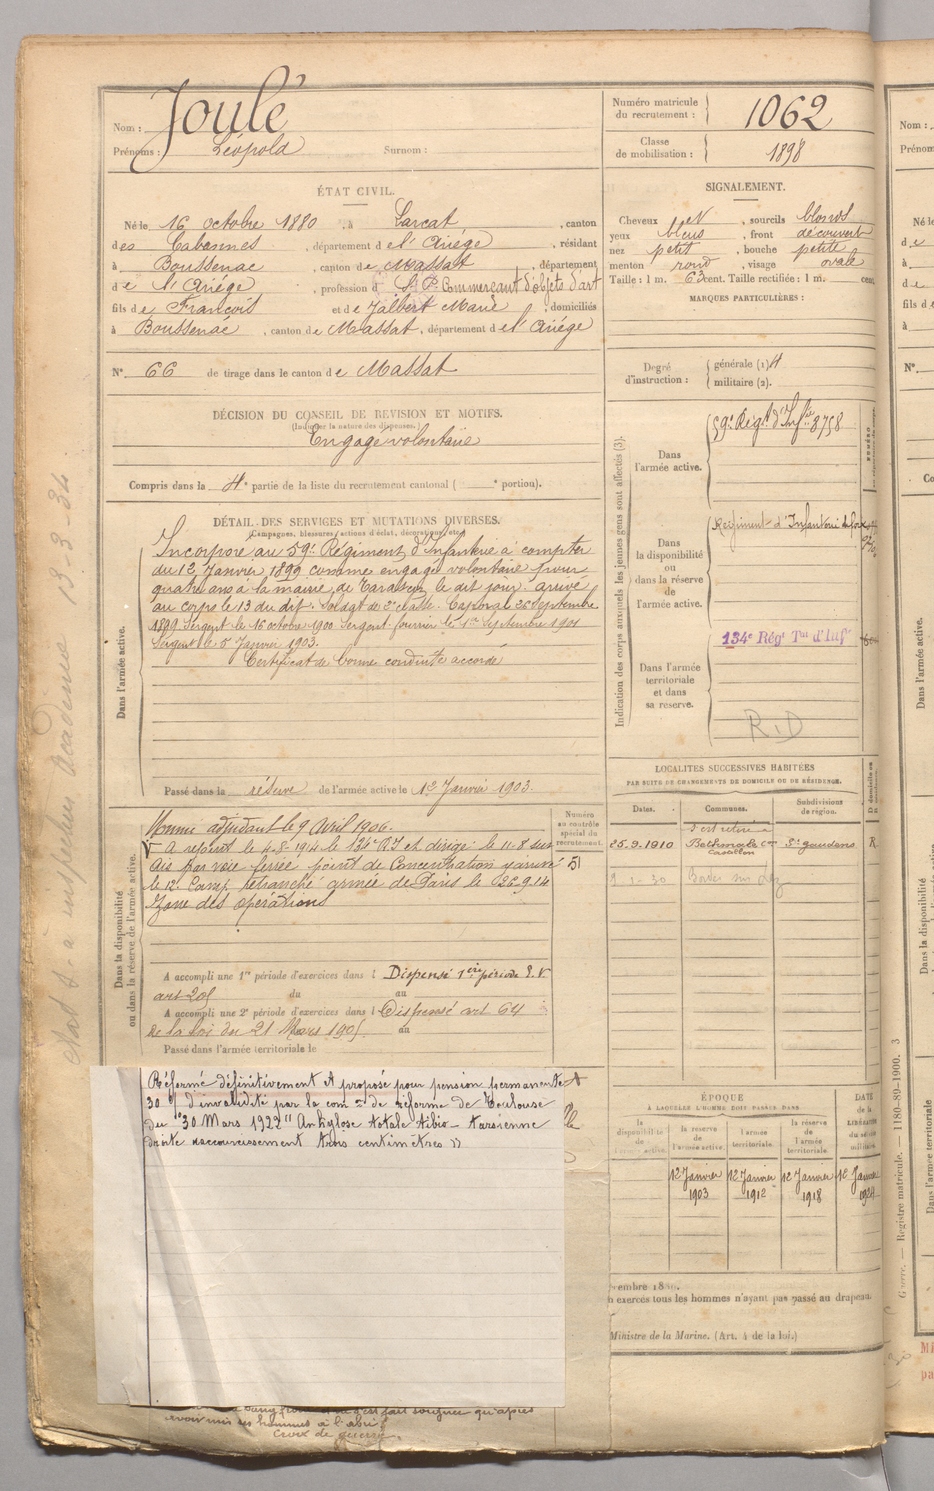 Nom : Joulé
Prénoms : Léopold Surnom :
Numéro matricule
du recrutement : 1062
Classe
de mobilisation : 1898
ÉTAT CIVIL.
Né le 16 octobre 1880, à Larcat, canton
des Cabannes, département de l'Ariège, résidant
à Boussenac, canton de Massat, département
de l'Ariège, profession d Commerçant d'objets d'art
fils de François et de Jalbert Marie, domiciliés
à Boussenac, canton de Massat, département de l'Ariège
N° 66 de tirage dans le canton de Massat
SIGNALEMENT.
Cheveux et, sourcils blonds
yeux bleus, front découvert
nez petit, bouche petite
menton rond, visage ovale
Taille : 1 m. 63 cent. Taille rectifiée : 1 m. cent.
MARQUES PARTICULIÈRES :
Degré
d'instruction :
générale (1)
militaire (2).
DÉCISION DU CONSEIL DE REVISION ET MOTIFS.
(Indiquer la nature des dispenses.)
Engagé volontaire
Compris dans la 4e partie de la liste du recrutement cantonal ( e portion).
DÉTAIL DES SERVICES ET MUTATIONS DIVERSES.
(Campagnes, blessures, actions d'éclat, décorations, etc.)
Dans l'armée active.
Incorporé au 59e Régiment d'Infanterie à compter
du 12 Janvier 1899 comme engagé volontaire pour
quatre ans à la mairie de Tarascon le dit jour. arrivé
au corps le 13 du dit. Soldat de 2e classe. Caporal 26 Septembre
1899 Sergent le 16 octobre 1900 Sergent fourrier le 1er septembre 1901
Sergent le 5 Janvier 1903.
Certificat de bonne conduite accordé
Passé dans la réserve de l'armée active le 12 Janvier 1903.
Dans la disponibilité
ou dans la réserve de l'armée active.
Numéro
au contrôle
spécial du
recrutement.
Nommé adjudant le 9 Avril 1906.
A rejoint le 4-8-1914 le 134e R.I et dirigé le 11-8 sur
par voie ferrée point de Concentration
le 12e Camp retranché armée de Paris le 26.9.14
Zone des opérations
A accompli une 1re période d'exercices dans l Dispensé 1ère période
art 205 du au
A accompli une 2e période d'exercices dans l Dispensé art 64
de la loi du 21 Mars 1905 au
Passé dans l'armée territoriale le
Réformé définitivement et proposé pour pension permanente
30 % d'invalidité par la com on de réforme de Toulouse
du 30 Mars 1922 "Ankylose totale tibio-tarsienne
droite raccourcissement trois centimètres"
fait soigner qu'après
avoir mis ses hommes à l'abri
Croix de guerre.
Indication des corps auxquels les jeunes gens sont affectés (3).
Dans
l'armée active.
59e Régt d'Infie 8758
Dans
la disponibilité
ou
dans la réserve
de
l'armée active.
Régiment d'Infanterie de Foix
134e Régt Tal d'Infie
Dans l'armée
territoriale
et dans
sa réserve.
R.D
LOCALITÉS SUCCESSIVES HABITÉES
PAR SUITE DE CHANGEMENTS DE DOMICILE OU DE RÉSIDENCE.
Dates. Communes. Subdivisions
de région.
s'est retiré à
25.9.1910 Bethmale con Castillon St gaudens R.
9-1-30 Bordes sur Lez
ÉPOQUE
À LAQUELLE L'HOMME DOIT PASSER DANS
DATE
de la
LIBÉRATION
du service
militaire.
la
disponibilité
de
l'armée active.
la réserve
de
l'armée active.
l'armée
territoriale.
la réserve
de
l'armée
territoriale.
12 Janvier 1903 12 Janvier 1912 12 Janvier 1918 12 Janvier 1924
exercés tous les hommes n'ayant pas passé au drapeau.
Ministre de la Marine. (Art. 4 de la loi.)
Guerre. — Registre matricule. — 1180-89-1900. 3
Etat S. à inspecteur Académie 13-3-34